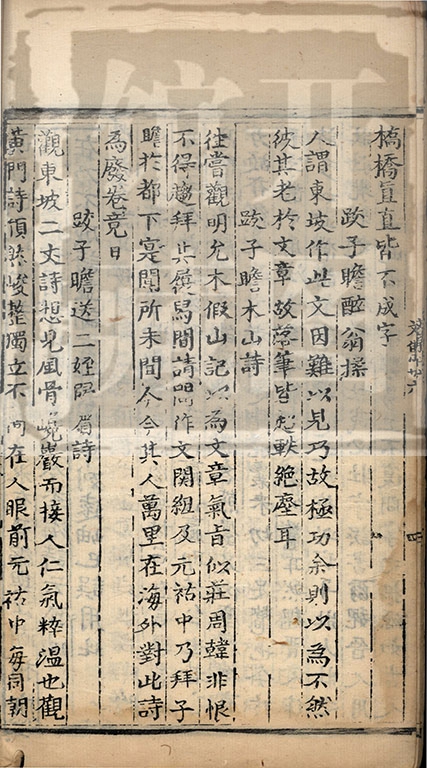 跋子瞻醉翁操
人謂東坡作此文因難以見巧故極功余則以為不然
彼其老於文章故落筆皆超軼絕塵耳
跋子瞻木山詩
往嘗觀明允木假山記以為文章氣旨似莊周韓非恨
不得趨拜其履舄間請問作文關紐及元祐中乃拜子
瞻於都下寔聞所未聞今其人萬里在海外對此詩
為廢卷竟日
跋子瞻送二姪歸眉詩
觀東坡二丈詩想見風骨巉巖而接人仁氣粹温也觀
黃門詩頎然峻整獨立不 在人眼前元祐中每同朝